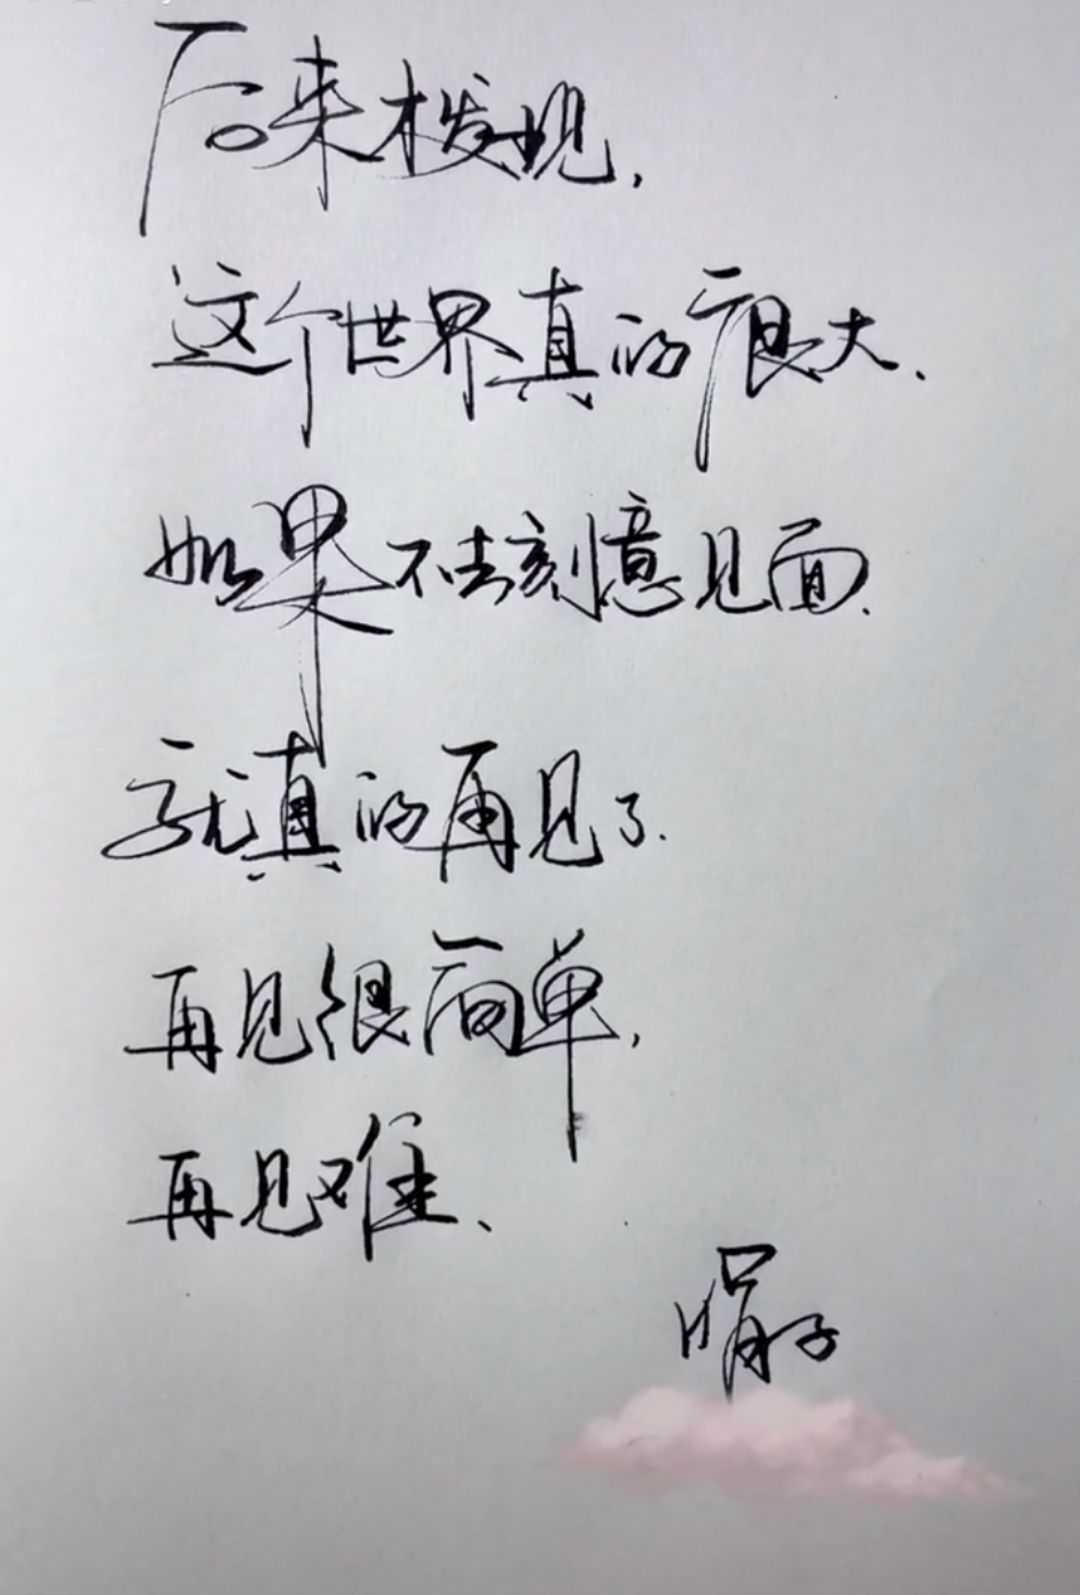 后来才发现,
这个世界真的很大.
如果不去刻意见面.
就真的再见了.
再见很简单,
再见难、
娟子